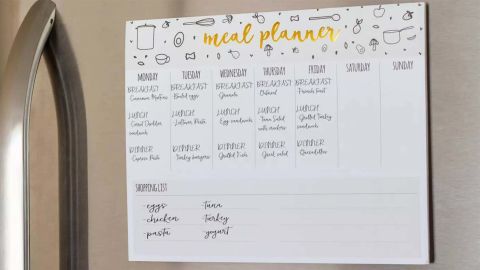 meal planner
MONDAY TUESDAY WEDNESDAY THURSDAY FRIDAY SATURDAY SUNDAY
BREAKFAST BREAKFAST BREAKFAST BREAKFAST BREAKFAST
-Cinnamon Muffins -Boiled eggs -Granola -Oatmeal -French toast
LUNCH LUNCH LUNCH LUNCH LUNCH
-Carrot Cheddar -Leftover Pasta -Egg -Tuna Salad -Grilled Turkey
sandwich sandwich with crackers sandwich
DINNER DINNER DINNER DINNER DINNER
-Caprese Pasta -Turkey burgers -Grilled Fish -Greek salad -Quesadillas
SHOPPING LIST
-eggs -tuna
-chicken -turkey
-pasta -yogurt